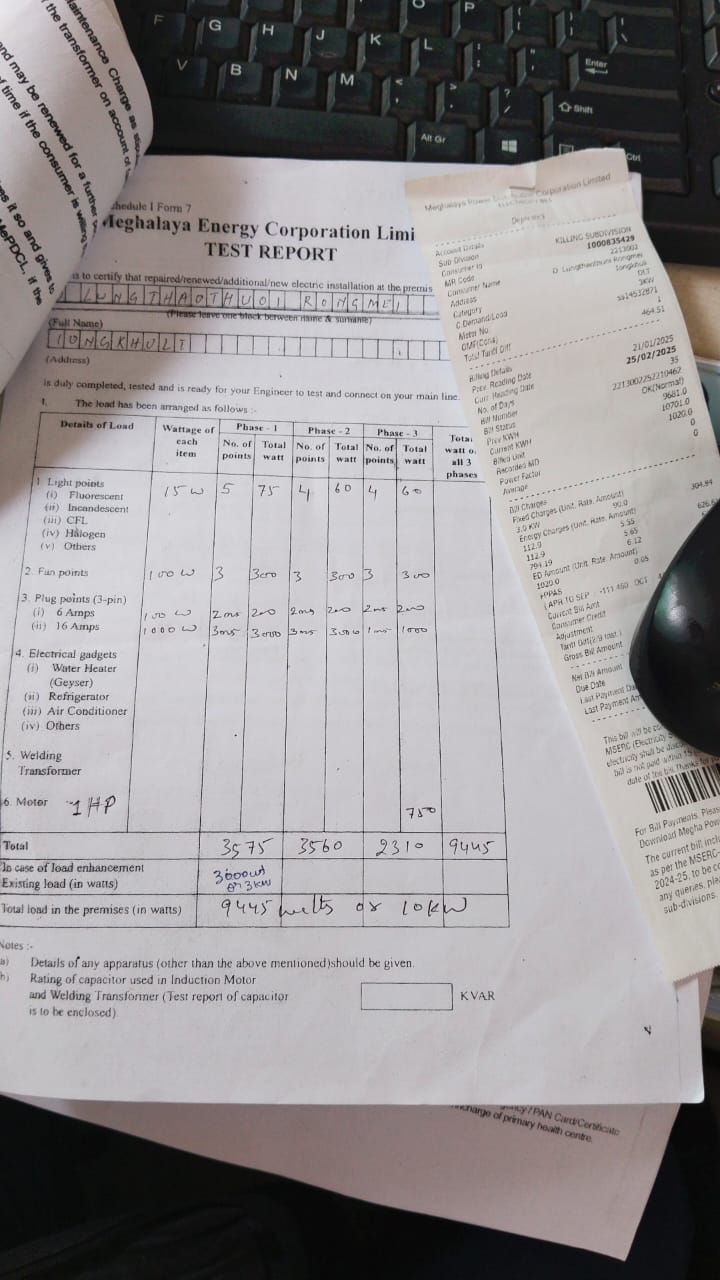 aintenance Charge as
the transformer on account of
and may be renewed for a further
of time if the consumer is willing
es it so and gives to
MePDCL, if the
F G H J K L O P
V B N M
Enter
Shift
Alt Gr
Ctrl
hedule I Form 7
Meghalaya Energy Corporation Limi
TEST REPORT
is to certify that repaired/renewed/additional/new electric installation at the premis
LUNGTHAOTHUOI RONGMEI
(Please leave one block between name & surname)
(Full Name)
IONGKHULI
(Address)
is duly completed, tested and is ready for your Engineer to test and connect on your main line.
1. The load has been arranged as follows :-
Details of Load Wattage of each item Phase - 1 Phase - 2 Phase - 3 Total watt of all 3 phases
No. of points Total watt No. of points Total watt No. of points Total watt
1 Light points 15 W 5 75 4 60 4 60
(i) Fluorescent
(ii) Incandescent
(iii) CFL
(iv) Halogen
(v) Others
2. Fan points 100 W 3 300 3 300 3 300
3. Plug points (3-pin)
(i) 6 Amps 100 W 2nos 200 2nos 200 2nos 200
(ii) 16 Amps 1000 W 3nos 3000 3nos 3000 1nos 1000
4. Electrical gadgets
(i) Water Heater
(Geyser)
(ii) Refrigerator
(iii) Air Conditioner
(iv) Others
5. Welding
Transformer
6. Motor 1 HP 750
Total 3575 3560 2310 9445
In case of load enhancement
Existing load (in watts) 3000wt or 3kw
Total load in the premises (in watts) 9445 watts or 10kW
Notes :-
a) Details of any apparatus (other than the above mentioned)should be given.
b) Rating of capacitor used in Induction Motor
and Welding Transformer (Test report of capacitor KVAR
is to be enclosed)
ncy / PAN Card/Certificate
ncharge of primary health centre.
Meghalaya Power Distribution Corporation Limited
Account Details
Sub Division KILLING SUBDIVISION
Consumer Id 1000835429
MR Code 2213002
Consumer Name
Address Iongkhuli
Category DLT
C.Demand/Load 3KW
Meter No ss14532871
OMF(Cons) 1
Total Tariff Diff 464.51
Billing Details
Prev. Reading Date 21/01/2025
Curr. Reading Date 25/02/2025
No. of Days 35
Bill Number 2213002252210462
Bill Status OK(Normal)
Prev KWH 9681.0
Current KWH 10701.0
Billed Unit 1020.0
Recorded MD 0
Power Factor 0
Average
Bill Charges
Fixed Charges (Unit, Rate, Amount)
3.0 KW 90.0 304.84
Energy Charges (Unit, Rate, Amount)
112.9 5.55 626.6
112.9 5.65
794.19 6.12
ED Amount (Unit, Rate, Amount)
1020.0 0.05
FPPAS
(APR TO SEP : -111.460 OCT
Current Bill Amt
Consumer Credit
Adjustment
Tariff Diff(2/9 Inst.)
Gross Bill Amount
Net Bill Amount
Due Date
Last Payment Da
Last Payment Am
This bill will be co
MSERC (Electricity S
electricity shall be disco
bill is not paid within 15
date of the bill. Thanks for
For Bill Payments, Pleas
Download Megha Pow
The current bill inclu
as per the MSERC
2024-25, to be co
any queries, ple
sub-divisions.